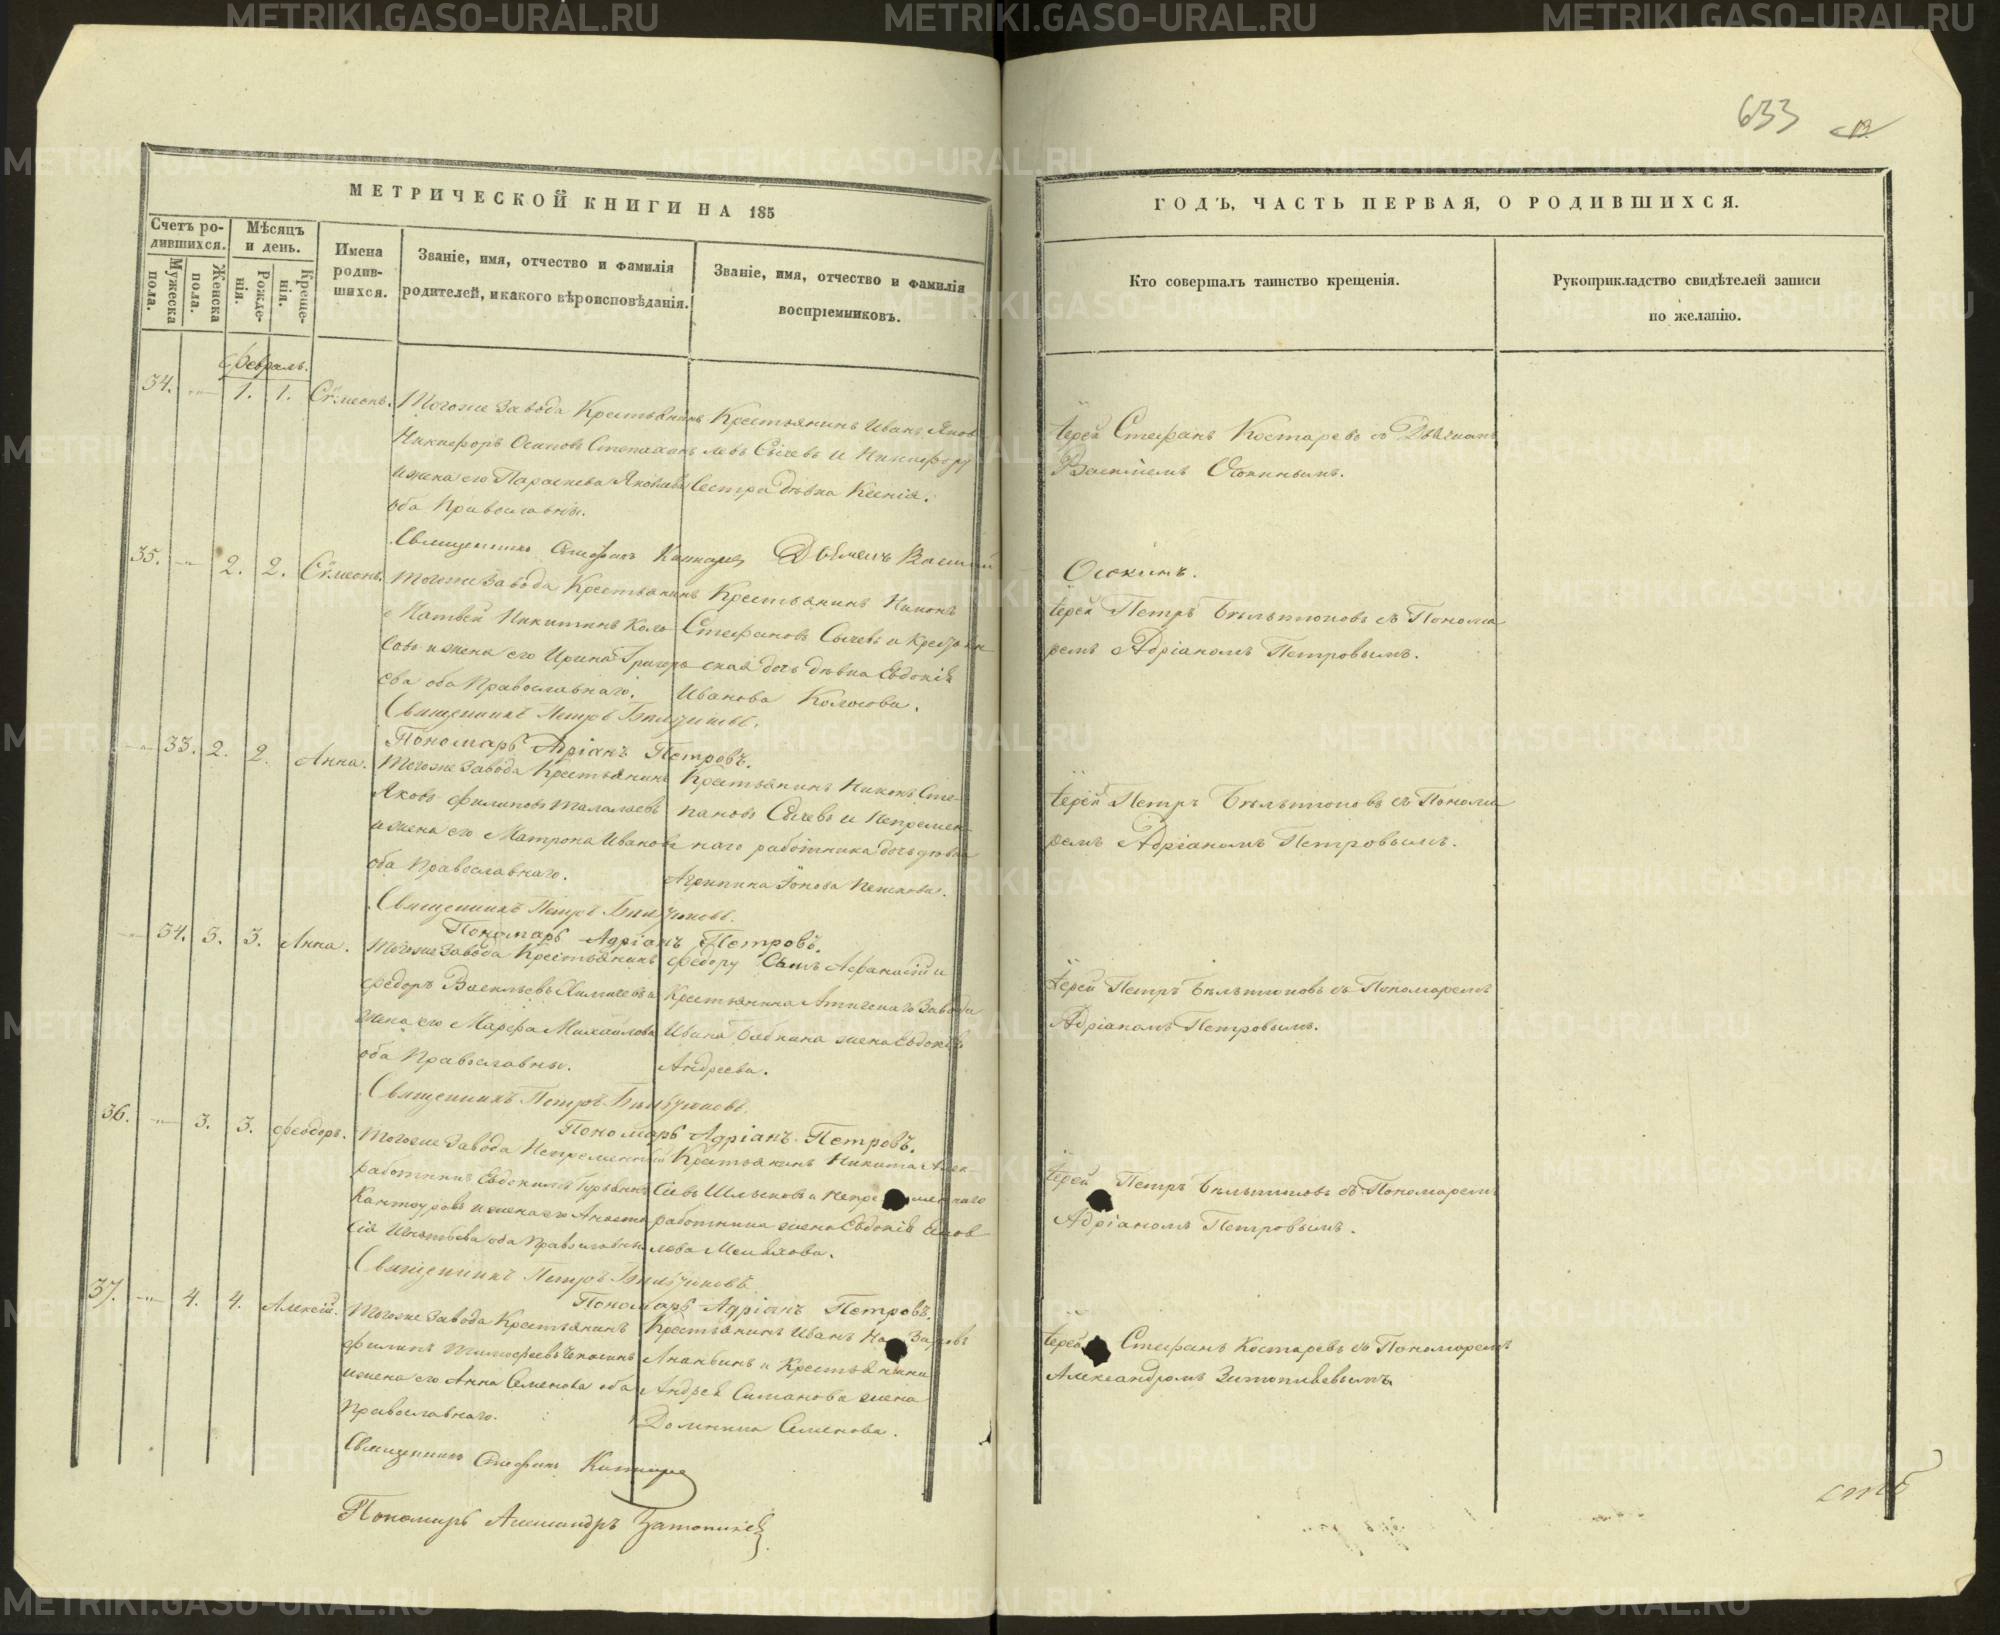 633
МЕТРИЧЕСКОЙ КНИГИ НА 185
ГОДЪ, ЧАСТЬ ПЕРВАЯ, О РОДИВШИХСЯ.
Счетъ родившихся.
Мужеска пола.
Женска пола.
Мѣсяцъ и день.
Рожденія.
Крещенія.
Имена родившихся.
Званіе, имя, отчество и фамилія родителей, и какого вѣроисповѣданія.
Званіе, имя, отчество и фамилія воспріемниковъ.
Кто совершалъ таинство крещенія.
Рукоприкладство свидѣтелей записи по желанію.
Февраль.
34. 1. 1. Сѵмеонъ.
Тогоже Завода Крестьянинъ
Никифоръ Осиповъ
и жена его Параскева Яковлева
оба Православніи.
Крестьянинъ Иванъ Яков
левъ Сычевъ и Никифору
Сестра дѣвка Ксенія.
Іерей Стефанъ Костаревъ съ Дьячкомъ
Василіемъ Осокинымъ.
Священникъ Стефанъ Костаревъ Дьячекъ Василій
Осокинъ.
35. 2. 2. Сѵмеонъ.
Тогоже Завода Крестьянинъ
Матвѣй Никитинъ Коло
совъ и жена его Ирина Григорь
ева оба Православнаго.
Крестьянинъ Никонъ
Стефановъ Сычевъ и Крестьян
ская дочь дѣвка Евдокія
Иванова Колосова.
Іерей Петръ Бѣльтюковъ съ Понома
ремъ Адріаномъ Петровымъ.
Священникъ Петръ Бѣльтюковъ.
Пономарь Адріанъ Петровъ.
33. 2. 2. Анна.
Тогоже Завода Крестьянинъ
Яковъ Филиповъ Талалаевъ
и жена его Матрона Иванова
оба Православнаго.
Крестьянинъ Никонъ Сте-
пановъ Сычевъ и Непремен-
наго работника дочь дѣвка
Агрипина Іонова
Іерей Петръ Бѣльтюковъ съ Понома
ремъ Адріаномъ Петровымъ.
Священникъ Петръ Бѣльтюковъ.
Пономарь Адріанъ Петровъ.
34. 3. 3. Анна.
Тогоже Завода Крестьянинъ
Федоръ Васильевъ и
жена его Марфа Михайлова
оба Православны.
Федору Сынъ Афанасій и
Крестьянина Атигскаго Завода
Ивана Бабкина жена Евдокія
Андреева.
Іерей Петръ Бѣльтюковъ съ Пономаремъ
Адріаномъ Петровымъ.
Священникъ Петръ Бѣльтюковъ.
Пономарь Адріанъ Петровъ.
36. 3. 3. Феодоръ.
Тогоже Завода Непременный
работникъ Евдокимъ Гурьевъ
и жена его Анаста
сія Игнатьева оба Православны
Крестьянинъ Никита Алек-
сѣевъ и Непременнаго
работника жена Евдокія Яков
лева
Іерей Петръ Бѣльтюковъ съ Пономаремъ
Адріаномъ Петровымъ.
Священникъ Петръ Бѣльтюковъ.
Пономарь Адріанъ Петровъ.
37. 4. 4. Алексій.
Тогоже Завода Крестьянинъ
Филипъ Тимофеевъ
и жена его Анна Семенова оба
Православнаго.
Крестьянинъ Иванъ Назаровъ
Ананьинъ и Крестьянина
Андрея Симанова жена
Домника Семенова.
Іерей Стефанъ Костаревъ съ Пономаремъ
Александромъ Затопляевымъ.
Священникъ Стефанъ Костарев
Пономарь Александръ
METRIKI.GASO-URAL.RU